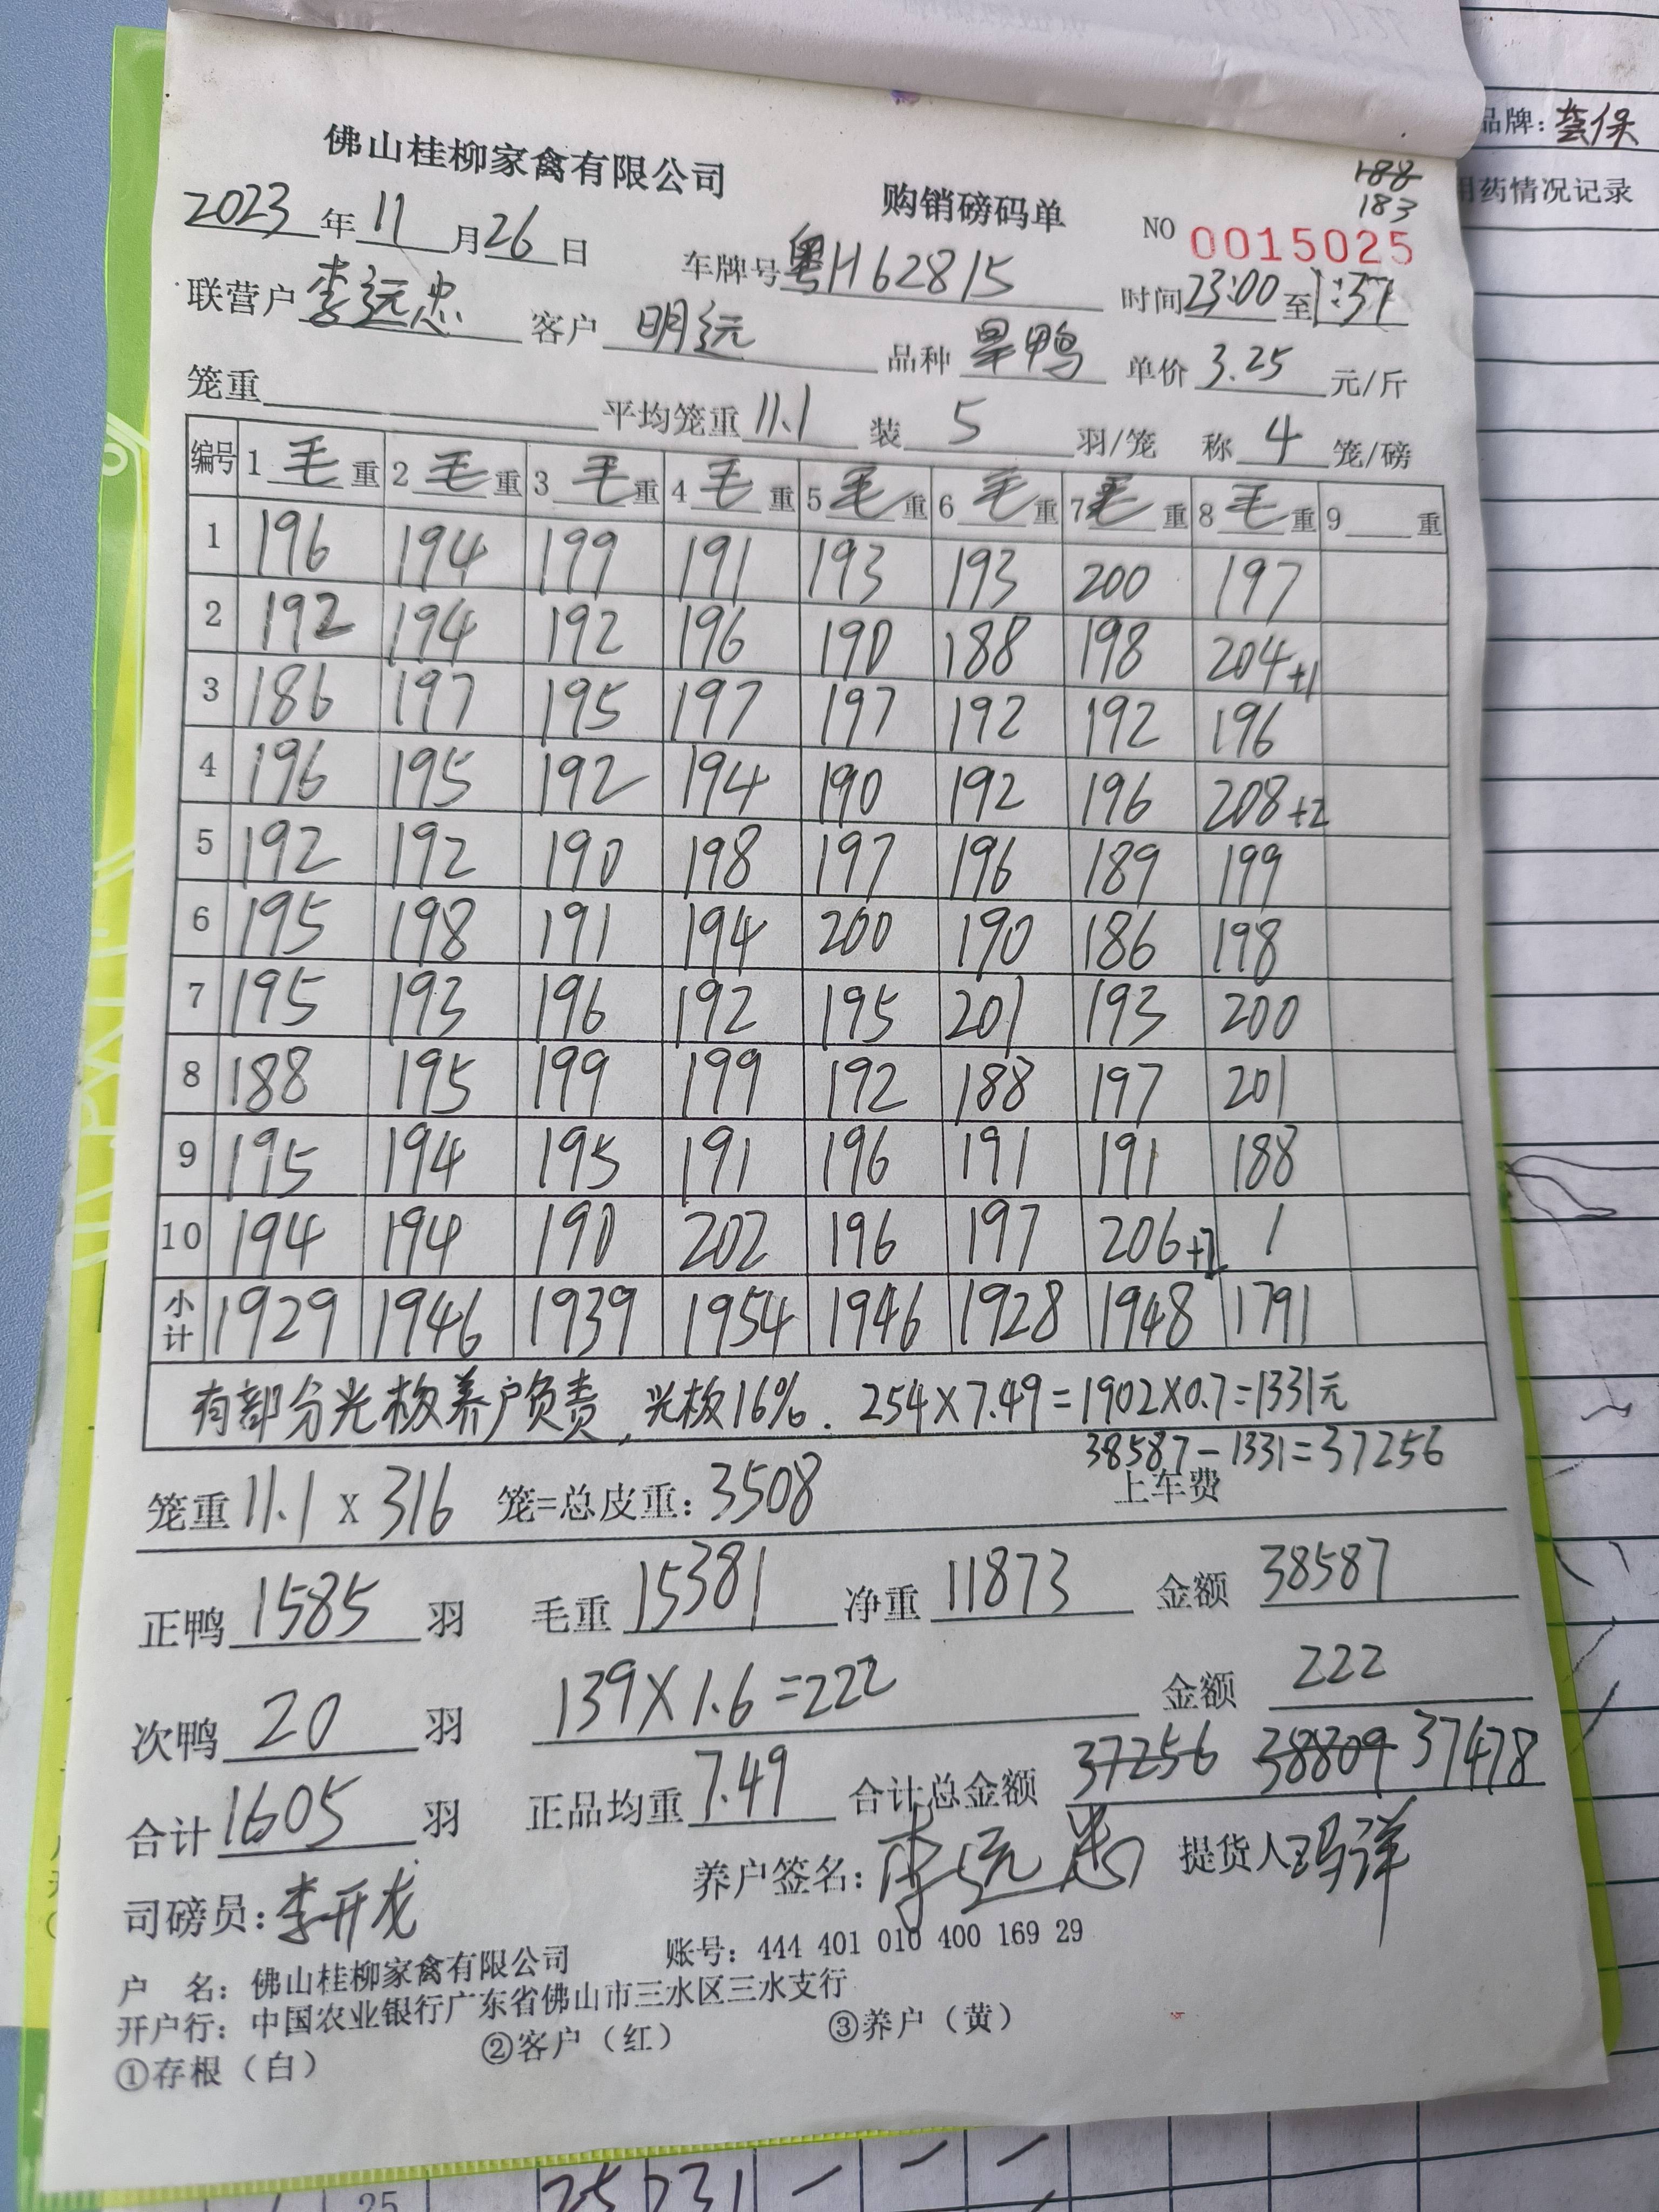 品牌：荟保
用药情况记录
佛山桂柳家禽有限公司 购销磅码单
188
183
NO 0015025
2023年11月26日 车牌号粤H62815 时间23:00至1:57
联营户李远忠 客户明远 品种旱鸭 单价3.25元/斤
笼重 平均笼重11.1 装5羽/笼 称4笼/磅
编号 1毛重 2毛重 3毛重 4毛重 5毛重 6毛重 7毛重 8毛重 9重
1 196 194 199 191 193 193 200 197
2 192 194 192 196 190 188 198 204+1
3 186 197 195 197 197 192 192 196
4 196 195 192 194 190 192 196 208+2
5 192 192 190 198 197 196 189 199
6 195 198 191 194 200 190 186 198
7 195 193 196 192 195 201 193 200
8 188 195 199 199 192 188 197 201
9 195 194 195 191 196 191 191 188
10 194 194 190 202 196 197 206+2 /
小计 1929 1946 1939 1954 1946 1928 1948 1791
有部分光板养户负责，光板16%. 254×7.49=1902×0.7=1331元
38587-1331=37256
笼重11.1×316 笼=总皮重：3508 上车费
正鸭1585羽 毛重15381 净重11873 金额38587
次鸭20羽 139×1.6=222 金额222
合计1605羽 正品均重7.49 合计总金额37256 38809 37478
司磅员：李开龙 养户签名：李远忠 提货人
户 名：佛山桂柳家禽有限公司 账号：444 401 010 400 169 29
开户行：中国农业银行广东省佛山市三水区三水支行
①存根（白） ②客户（红） ③养户（黄）
25